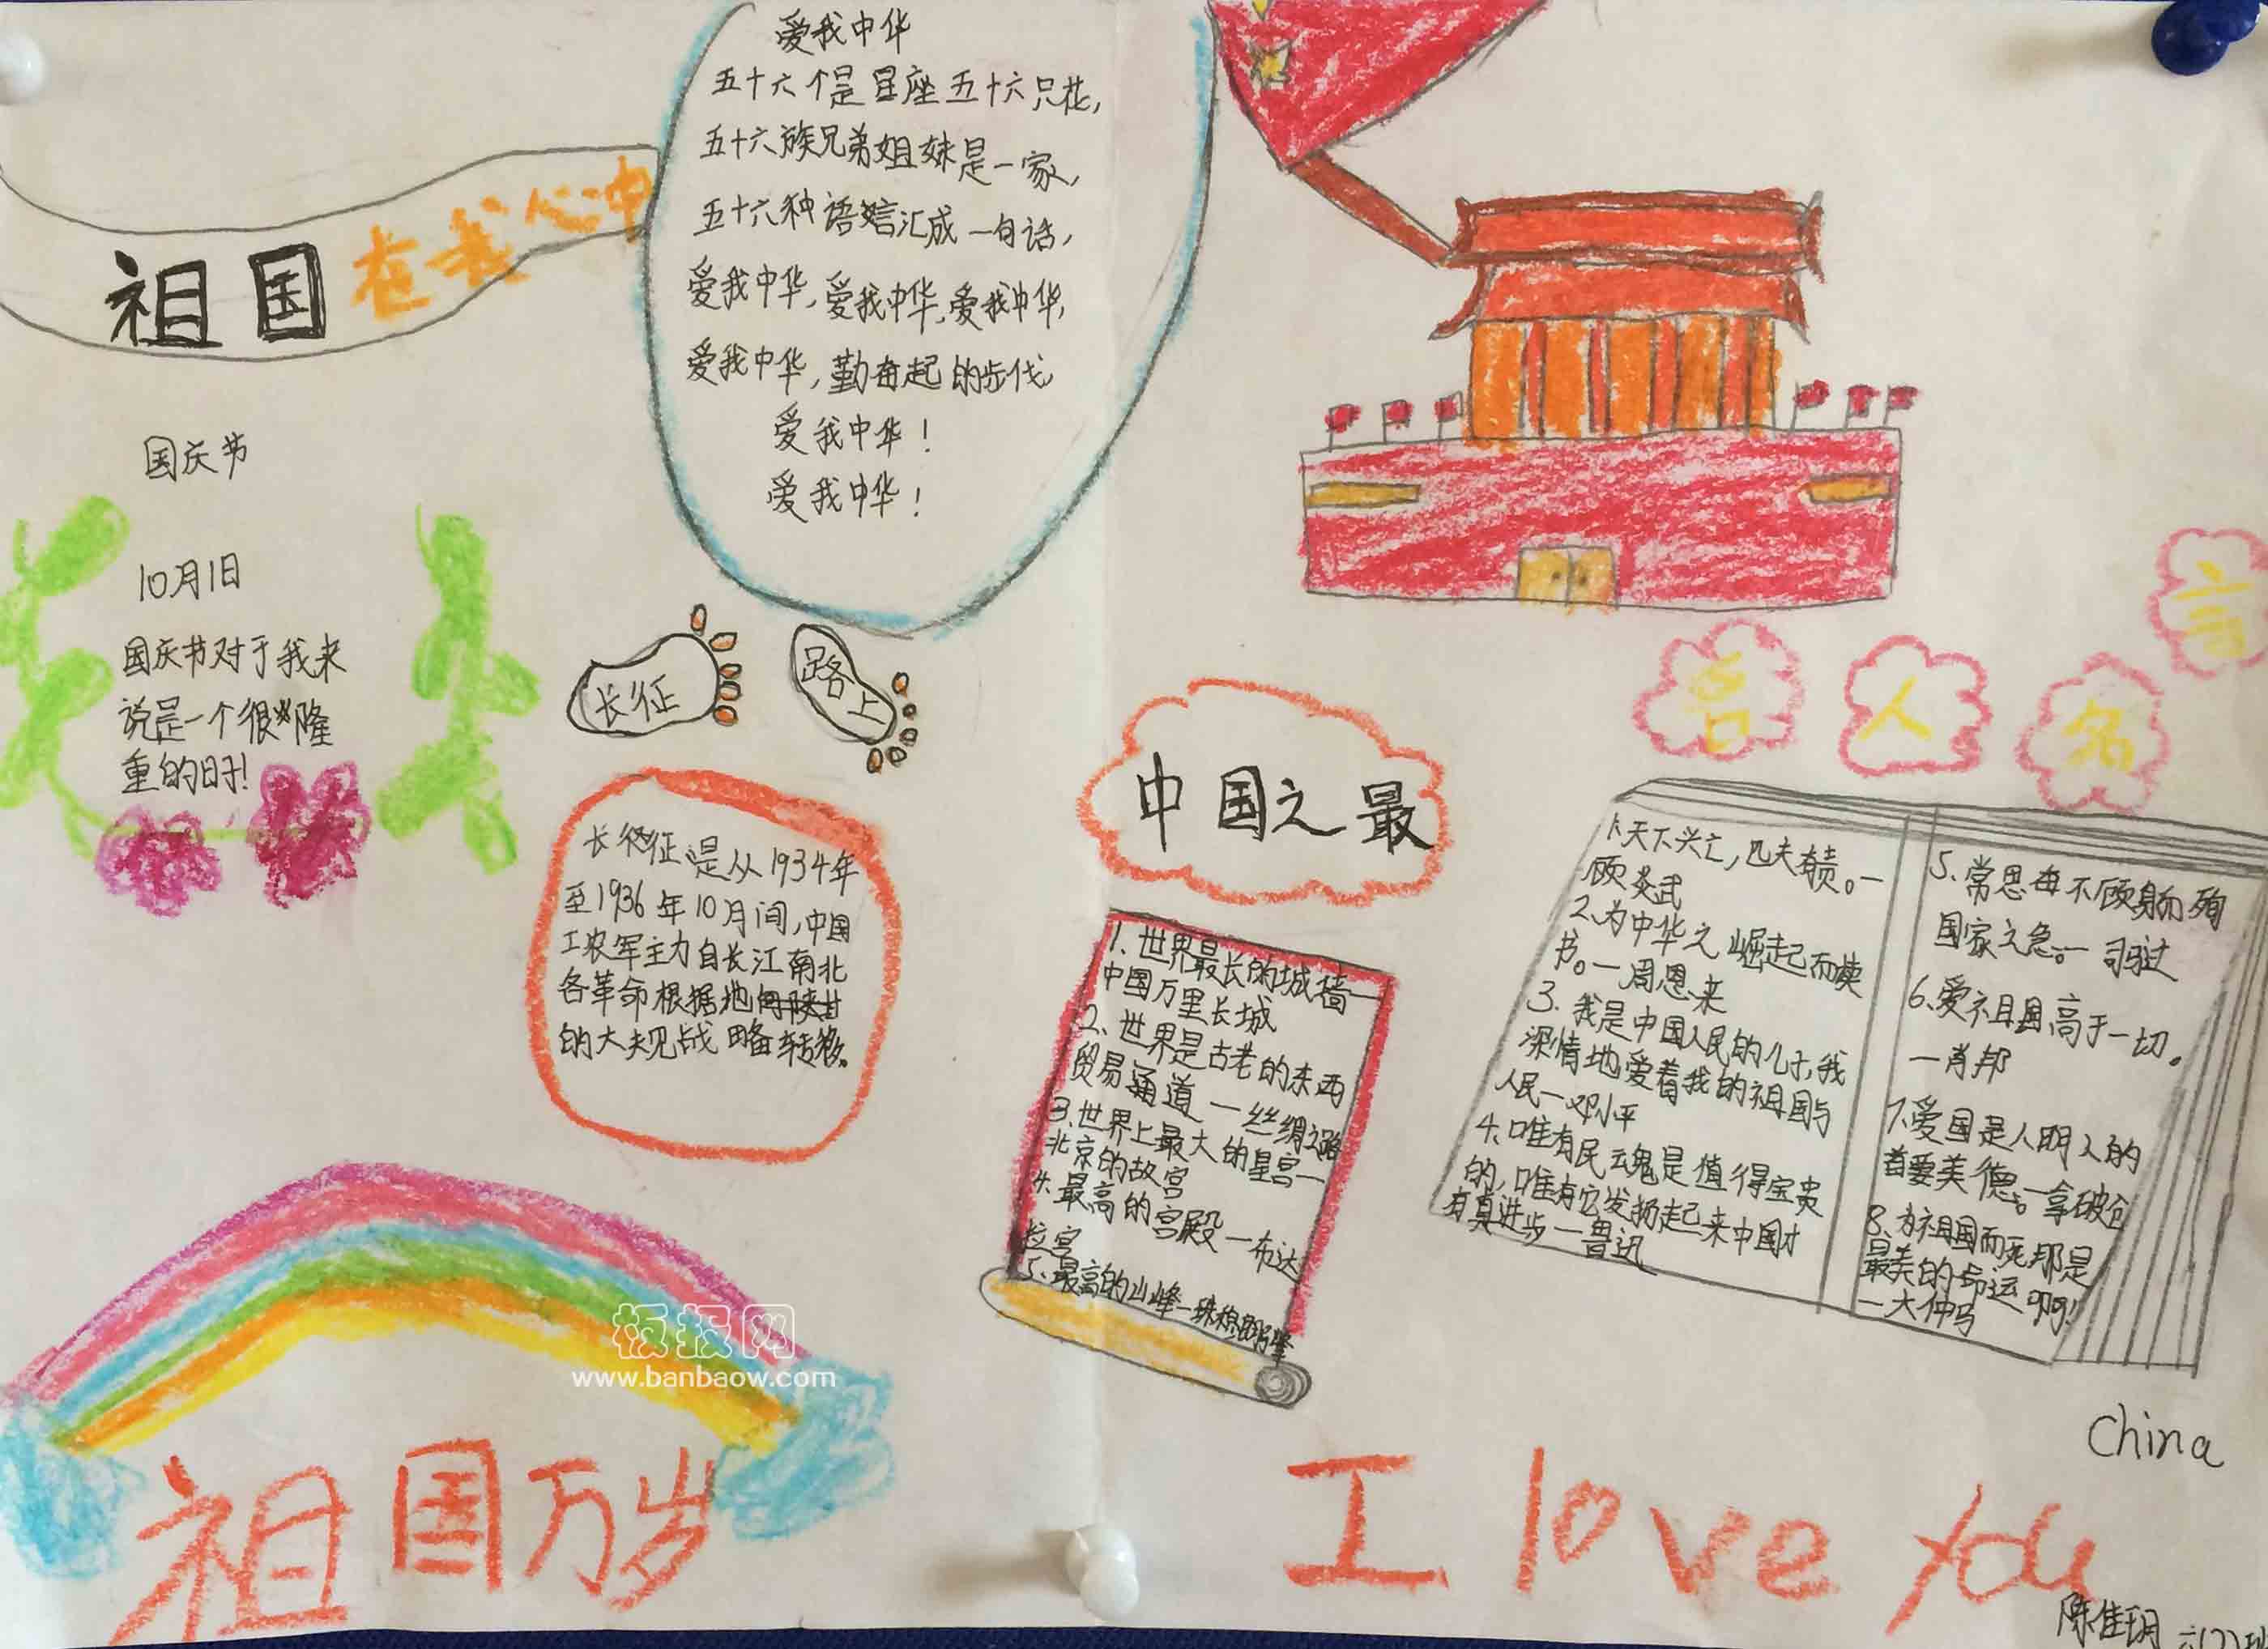 祖国在我心中
爱我中华
五十六个是星座五十六只花,
五十六族兄弟姐妹是一家,
五十六种语言汇成一句话,
爱我中华,爱我中华,爱我中华,
爱我中华,勤奋起的步伐
爱我中华!
爱我中华!
国庆节
10月1日
国庆节对于我来
说是一个很隆
重的日子!
长征
路上
长征是从1934年
至1936年10月间,中国
工农军主力自长江南北
各革命根据地向陕甘
的大规战略转移。
中国之最
1、世界最长的城墙一
中国万里长城
2、世界是古老的东西
贸易通道一丝绸之路
3、世界上最大的皇宫一
北京的故宫
4、最高的宫殿一布达
拉宫
5、最高的山峰一珠穆朗玛峰
名人名言
1、天下兴亡,匹夫有责。一
顾炎武
2、为中华之崛起而读
书。一周恩来
3、我是中国人民的儿子,我
深情地爱着我的祖国与
人民一邓小平
4、唯有民魂是值得宝贵
的,唯有它发扬起来中国才
有真进步一鲁迅
5、常思奋不顾身而殉
国家之急。一司马迁
6、爱祖国高于一切。
一肖邦
7、爱国是人明人的
首要美德。一拿破仑
8、为祖国而死,那是
最美的命运啊!
一大仲马
板报网
www.banbaow.com
祖国万岁
China
I love you
陈佳玥